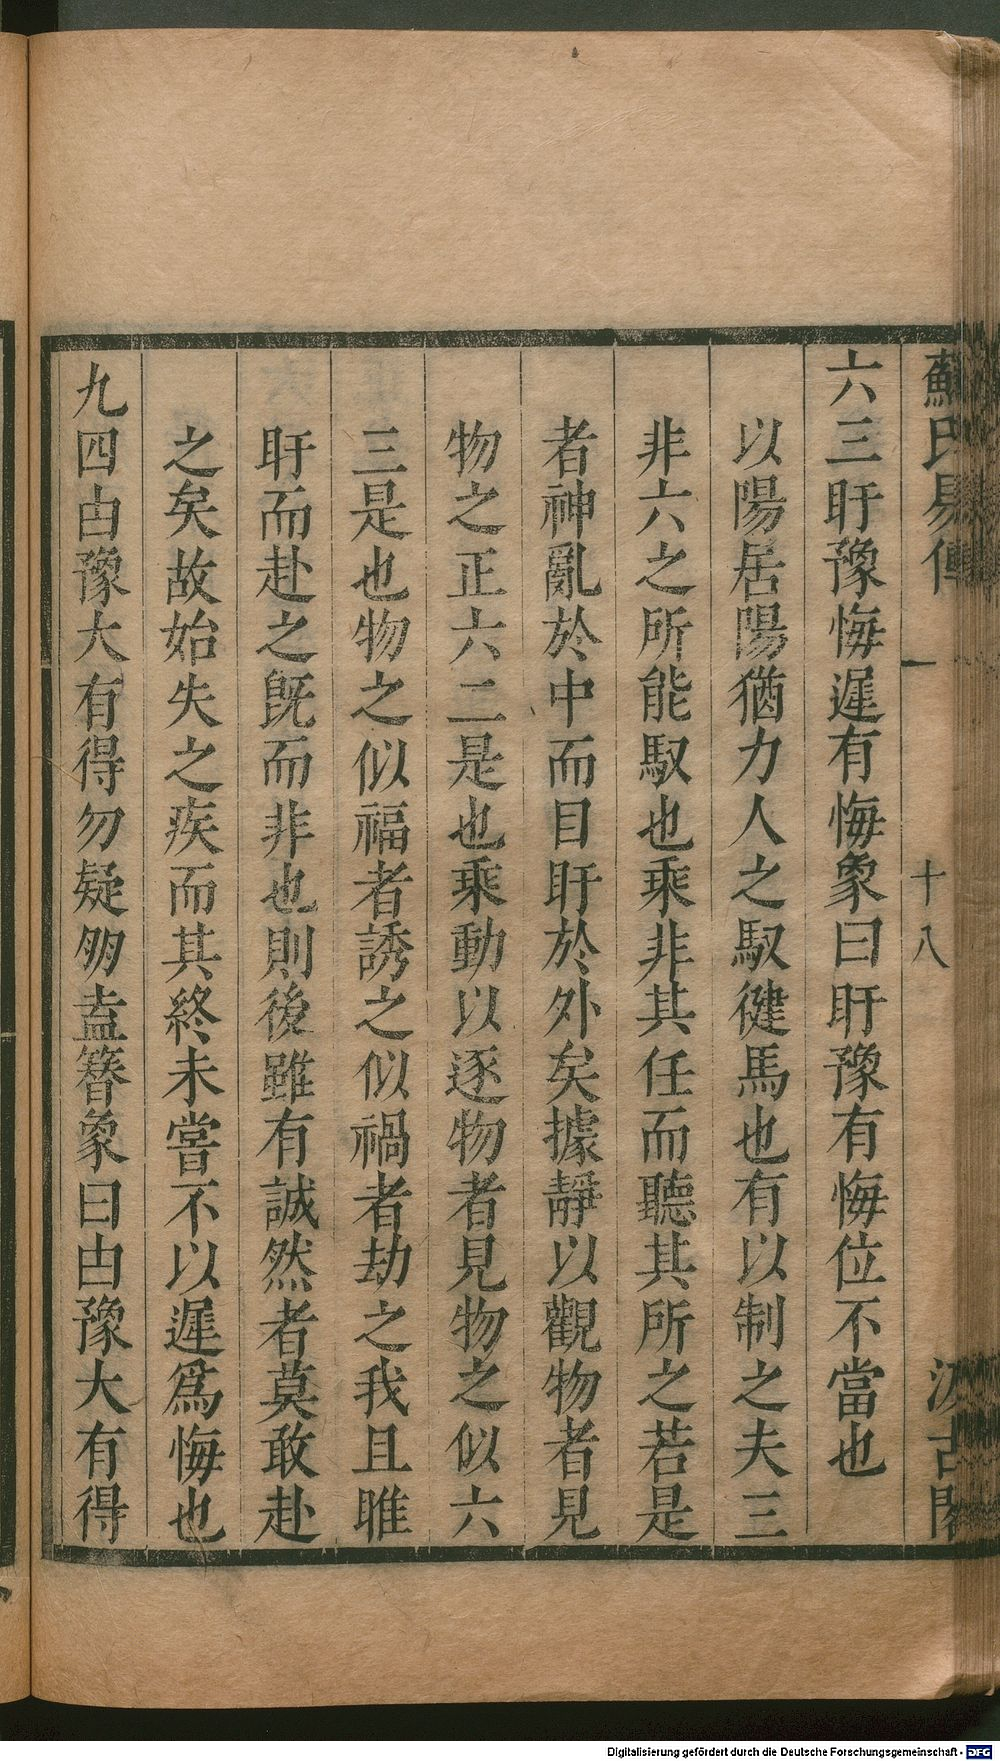 蘇氏易傳 一 十八 汲古閣
六三盱豫悔遲有悔象曰盱豫有悔位不當也
以陽居陽猶力人之馭徤馬也有以制之夫三
非六之所能馭也乘非其任而聽其所之若是
者神亂於中而目盱於外矣據靜以觀物者見
物之正六二是也乘動以逐物者見物之似六
三是也物之似福者誘之似禍者劫之我且睢
盱而赴之旣而非也則後雖有誠然者莫敢赴
之矣故始失之疾而其終未嘗不以遲爲悔也
九四由豫大有得勿疑朋盍簪象曰由豫大有得
Digitalisierung gefördert durch die Deutsche Forschungsgemeinschaft - DFG